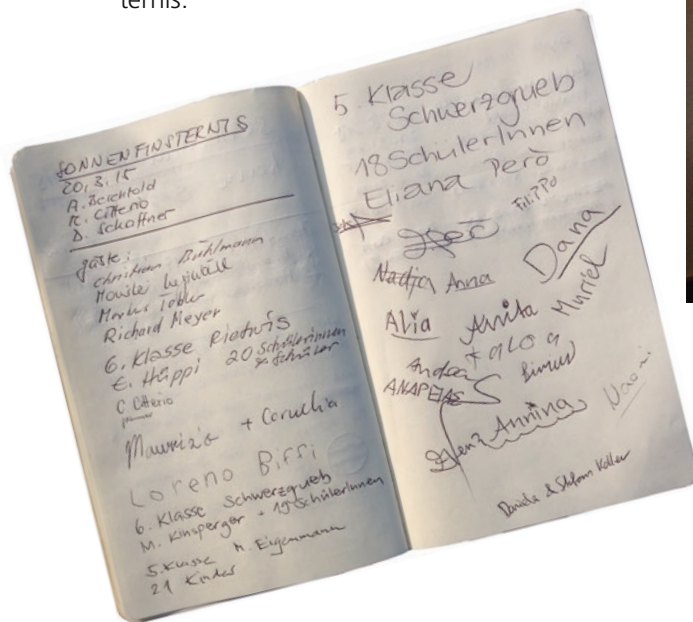 ternis.
SONNENFINSTERNIS
20.3.15
A. Berchtold
R. Citterio
D. Schaffner
Gäste:
Christian Bühlmann
Markus Tobler
Richard Meyer
6. Klasse Rietwis
E. Hüppi 20 Schülerinnen
& Schüler
C Citterio
Maurizio + Cornelia
Loreno Biffi
6. Klasse Schwerzgrueb
M. Kinsperger + 19 SchülerInnen
5. Klasse M. Eugenmann
21 Kinder
5. Klasse
Schwerzgrueb
18 SchülerInnen
Eliana Però
Filippo
Nadja Anna
Dana
Alia Anita Muriel
Andrea
Annina
Naomi
Daniela & Stefan Keller